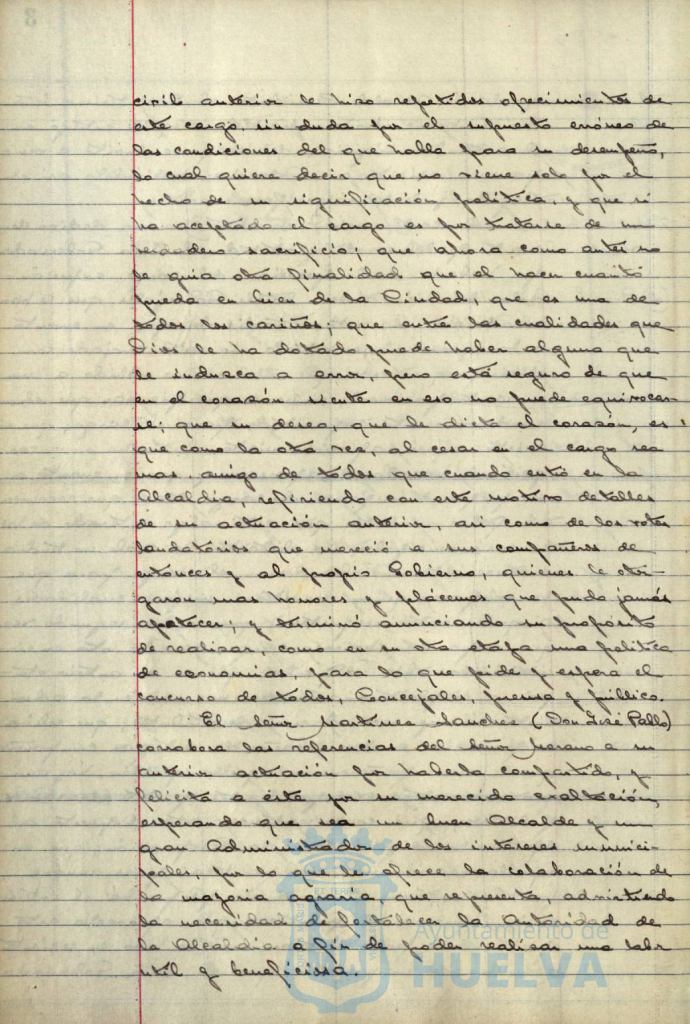 civil anterior le hizo repetidos ofrecimientos de
este cargo, sin duda por el supuesto erróneo de
las condiciones del que habla para su desempeño,
lo cual quiere decir que no viene solo por el
hecho de su significación política, y que si
ha aceptado el cargo es por tratarse de un
verdadero sacrificio; que ahora como antes no
le guia otra finalidad que el hacer cuanto
pueda en bien de la Ciudad, que es una de
todos los cariños; que entre las cualidades que
Dios le ha dotado puede haber alguna que
le induzca a error, pero está seguro de que
en el corazón siente en eso no puede equivocar-
se; que su deseo, que le dicta el corazón, es
que como la otra vez, al cesar en el cargo sea
mas amigo de todos que cuando entró en la
Alcaldía, refiriendo con este motivo detalles
de su actuación anterior, asi como de los votos
laudatorios que mereció a sus compañeros de
entonces y al propio Gobierno, quienes le otor-
garon mas honores y plácemes que pudo jamás
apetecer; y terminó anunciando su propósito
de realizar, como en su otra etapa una política
de economias, para lo que pide y espera el
concurso de todos, Concejales, prensa y público.
El Señor Martinez Sanchez (Don José Pablo)
corrobora las referencias del Señor Moreno a su
anterior actuación por haberla compartido, y
felicita a éste por su merecida exaltación,
esperando que sea un buen Alcalde y un
gran Administrador de los intereses munici-
pales, por lo que le ofrece la colaboración de
la mayoria agraria, que representa, admitiendo
la necesidad de fortalecer la Autoridad de
la Alcaldia a fin de poder realizar una labor
util y beneficiosa.
Ayuntamiento de
HUELVA